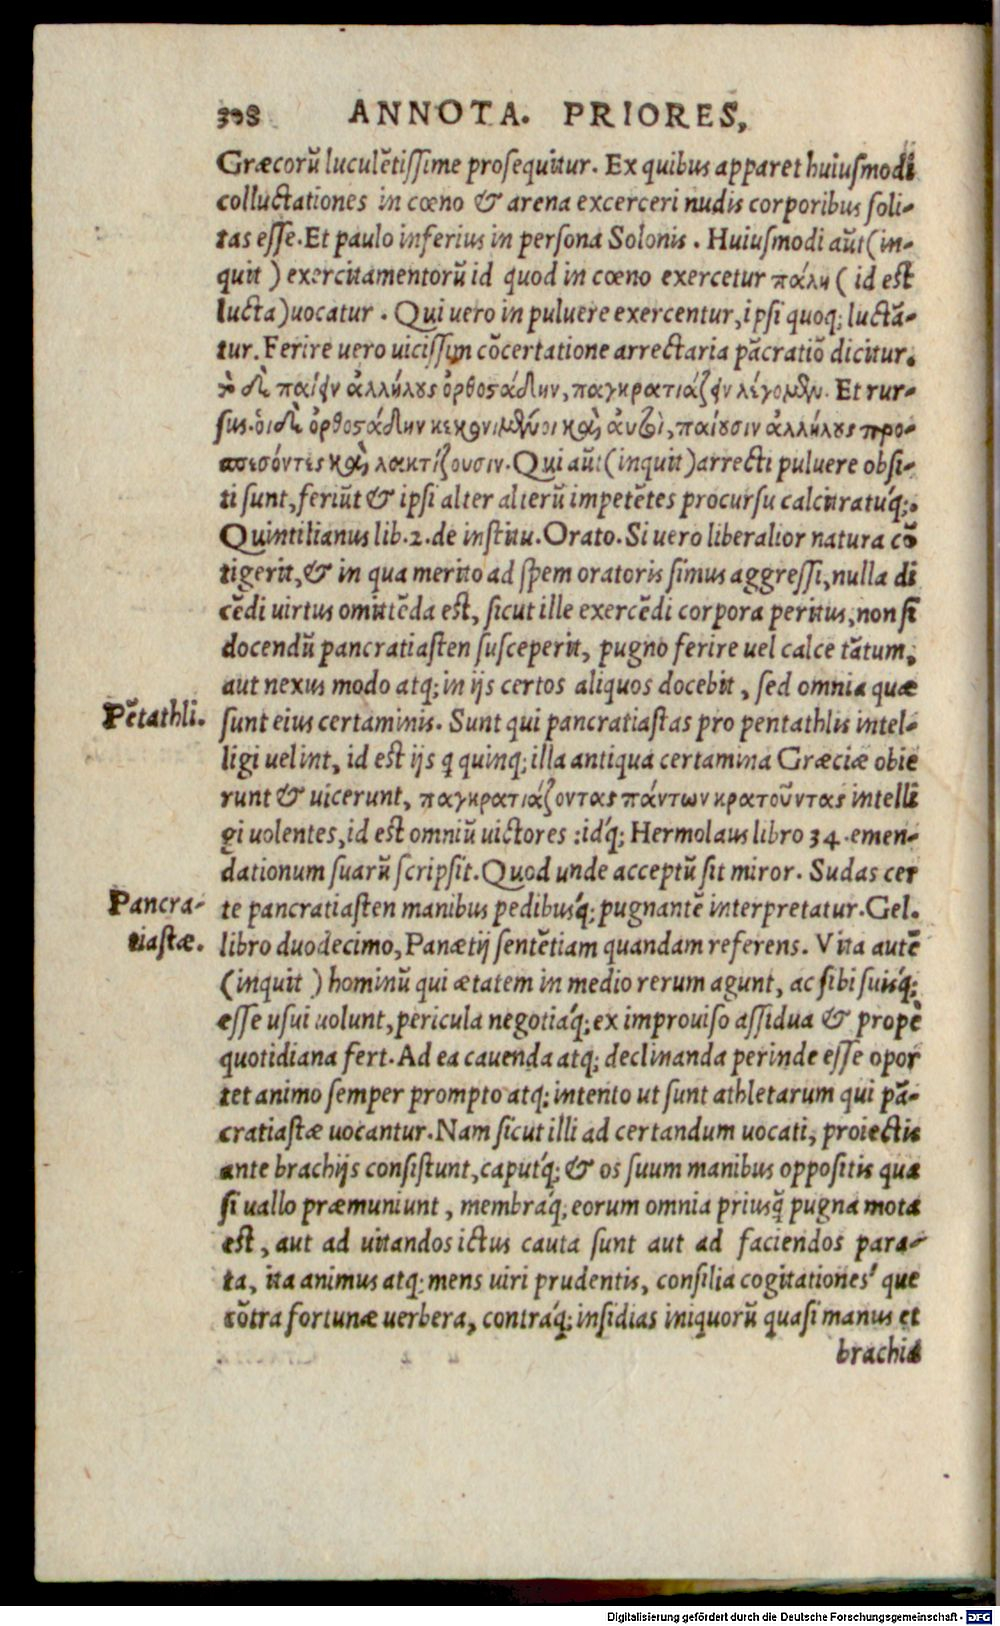 308 ANNOTA. PRIORES,
Græcorũ luculẽtissime prosequitur. Ex quibus apparet huiusmodi
colluctationes in cœno & arena excerceri nudis corporibus soli-
tas esse. Et paulo inferius in persona Solonis. Huiusmodi aũt (in-
quit) exercitamentorũ id quod in cœno exercetur πάλη (id est
lucta) uocatur. Qui uero in puluere exercentur, ipsi quoq; luctã-
tur. Ferire uero uicissim cõcertatione arrectaria pãcratiõ dicitur.
τὸ δὲ παίειν ἀλλήλους ὀρθοστάδην, παγκρατιάζειν λέγομεν. Et rur-
sus. ὁι δὲ ὀρθοστάδην κεκονιμένοι καὶ ἀυτοὶ, παίουσιν ἀλλήλους προ-
πεσόντες καὶ λακτίζουσιν. Qui aũt (inquit) arrecti puluere obsi-
ti sunt, feriũt & ipsi alter alterũ impetẽtes procursu calcitratúq;.
Quintilianus lib. 2. de institu. Orato. Si uero liberalior natura cõ
tigerit, & in qua merito ad spem oratoris simus aggressi, nulla di
cẽdi uirtus omittẽda est, sicut ille exercẽdi corpora peritus, non si
docendũ pancratiasten susceperit, pugno ferire uel calce tãtum,
aut nexus modo atq; in ijs certos aliquos docebit, sed omnia quæ
Pẽtathli. sunt eius certaminis. Sunt qui pancratiastas pro pentathlis intel-
ligi uelint, id est ijs q quinq; illa antiqua certamina Græciæ obie
runt & uicerunt, παγκρατιάζοντας πάντων κρατοῦντας intelli
gi uolentes, id est omniũ uictores: idq́; Hermolaus libro 34. emen-
dationum suarũ scripsit. Quod unde acceptũ sit miror. Sudas cer
Pancra- te pancratiasten manibus pedibusq́; pugnantẽ interpretatur. Gel.
tiastæ. libro duodecimo, Panætij sentẽtiam quandam referens. Vita autẽ
(inquit) hominũ qui ætatem in medio rerum agunt, ac sibi suisq́;
esse usui uolunt, pericula negotiáq; ex improuiso assidua & propè
quotidiana fert. Ad ea cauenda atq; declinanda perinde esse opor
tet animo semper prompto atq; intento ut sunt athletarum qui pã-
cratiastæ uocantur. Nam sicut illi ad certandum uocati, proiectis
ante brachijs consistunt, caputq́; & os suum manibus oppositis qua
si uallo præmuniunt, membráq; eorum omnia priusq̃ pugna mota
est, aut ad uitandos ictus cauta sunt aut ad faciendos para-
ta, ita animus atq; mens uiri prudentis, consilia cogitationes' que
cõtra fortunæ uerbera, contráq; insidias iniquorũ quasi manus et
brachia
Digitalisierung gefördert durch die Deutsche Forschungsgemeinschaft - DFG